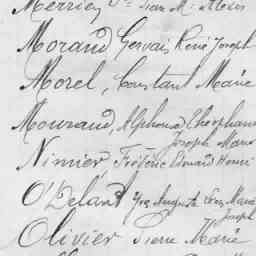 Jean M. Alexis
Morand Gervais René Joseph
Morel, Constant Marie
Mouraud, Alphonse Théophane
Joseph Marie
Nimier, Frédéric Edouard Henri
O'Delant Yves Auguste Marie
Joseph
Olivier Pierre Marie